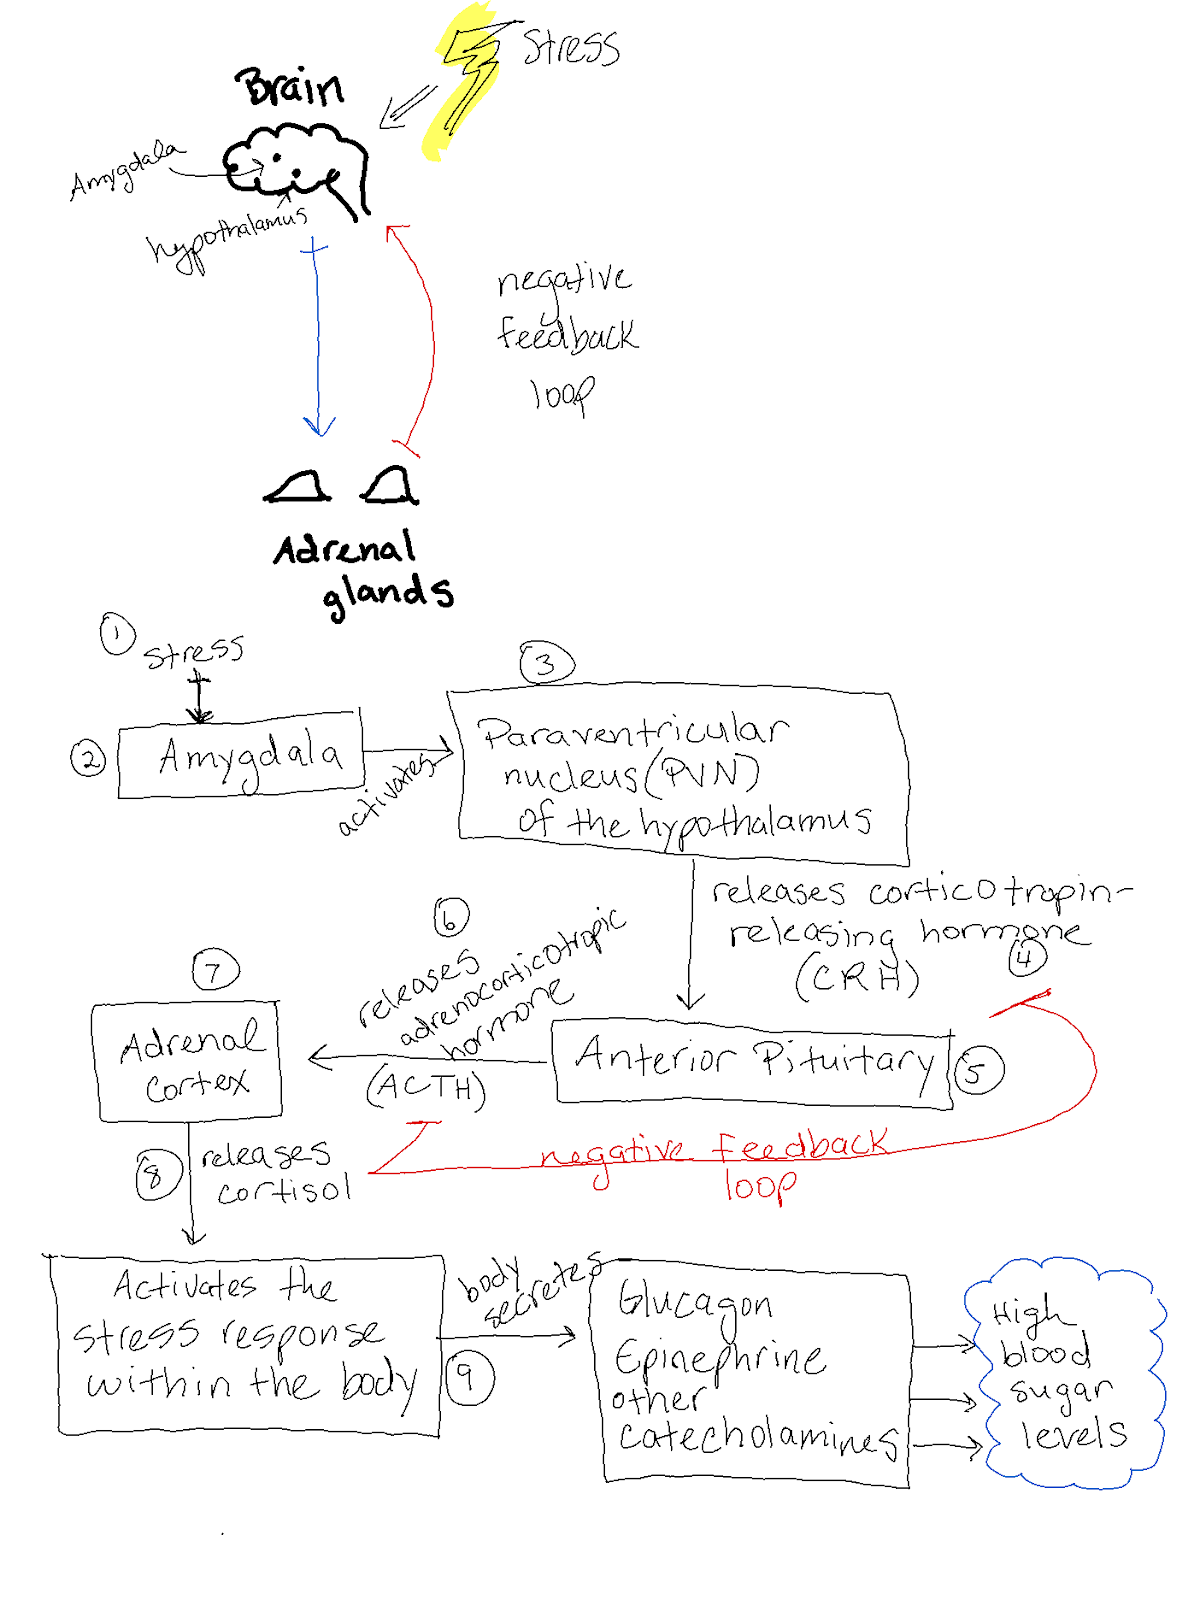 Stress
Brain
Amygdala
hypothalamus
negative
feedback
loop
Adrenal
glands
1
stress
2
Amygdala
activates
3
Paraventricular
nucleus (PVN)
of the hypothalamus
releases corticotropin-
releasing hormone
(CRH)
4
Anterior Pituitary
5
6
releases
adrenocorticotropic
hormone
(ACTH)
7
Adrenal
cortex
8
releases
cortisol
negative feedback
loop
Activates the
stress response
within the body
9
body
secretes
Glucagon
Epinephrine
other
catecholamines
High
blood
sugar
levels